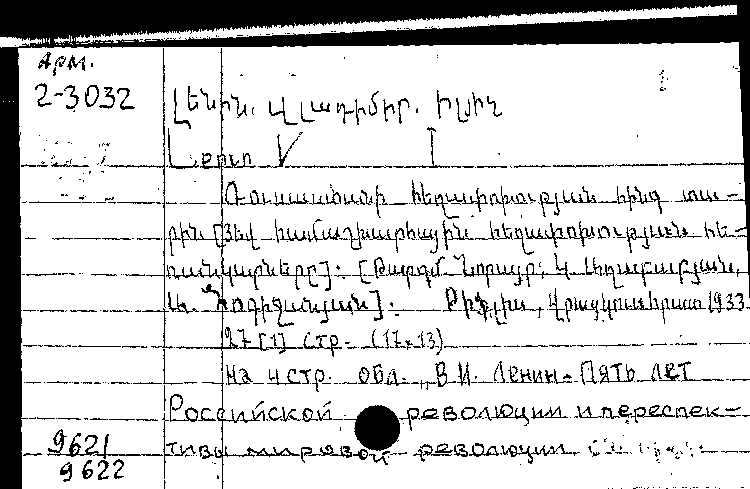 Арм.
2-3032
Լենին. Վլադիմիր. Իլյիչ
Ռուսաստանի հեղափոխության հինգ տա-
րին [յեվ համաշխարհային հեղափոխության հե-
ռանկարները]: [Թարգմ.
Թիֆլիս, 1933
27 [1] стр. (17×13)
На 4 стр. обл. „В.И. Ленин. Пять лет
Российской революции и перспек-
тивы мировой революции.
9621
9622